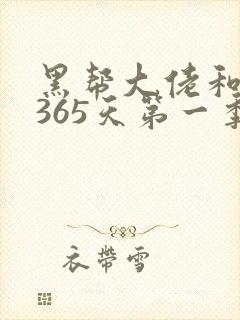 黑帮大佬和
365天第一季
衣带雪